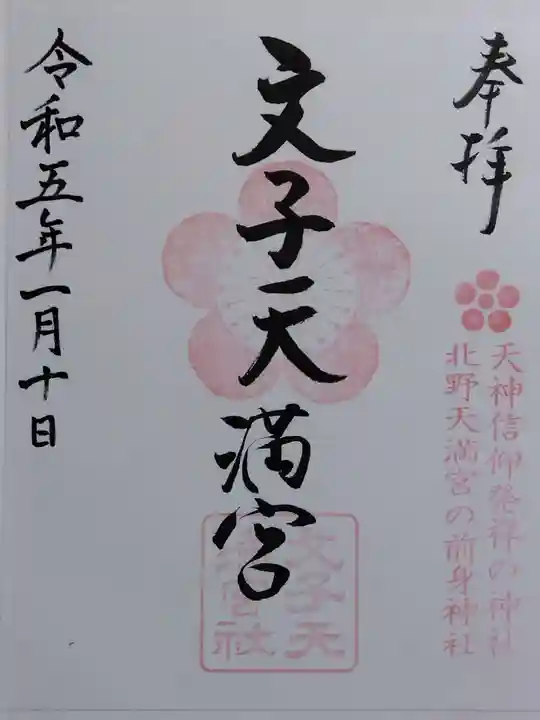 奉拝
天神信仰発祥の神社
北野天満宮の前身神社
文子天満宮
文子天
満宮社
令和五年一月十日